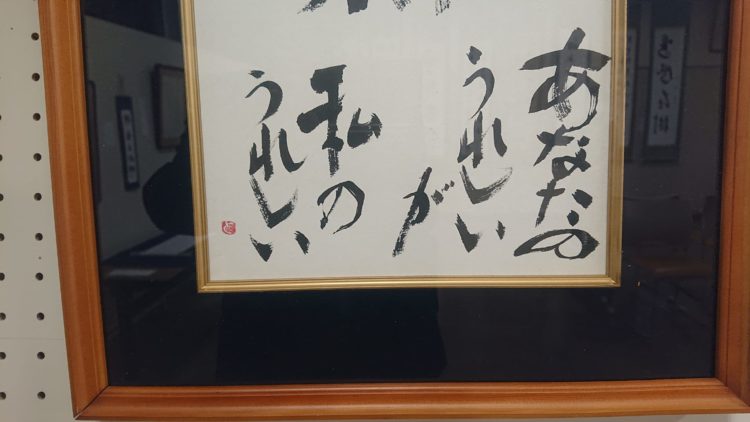 あなたの
うれしい
が
私の
うれしい